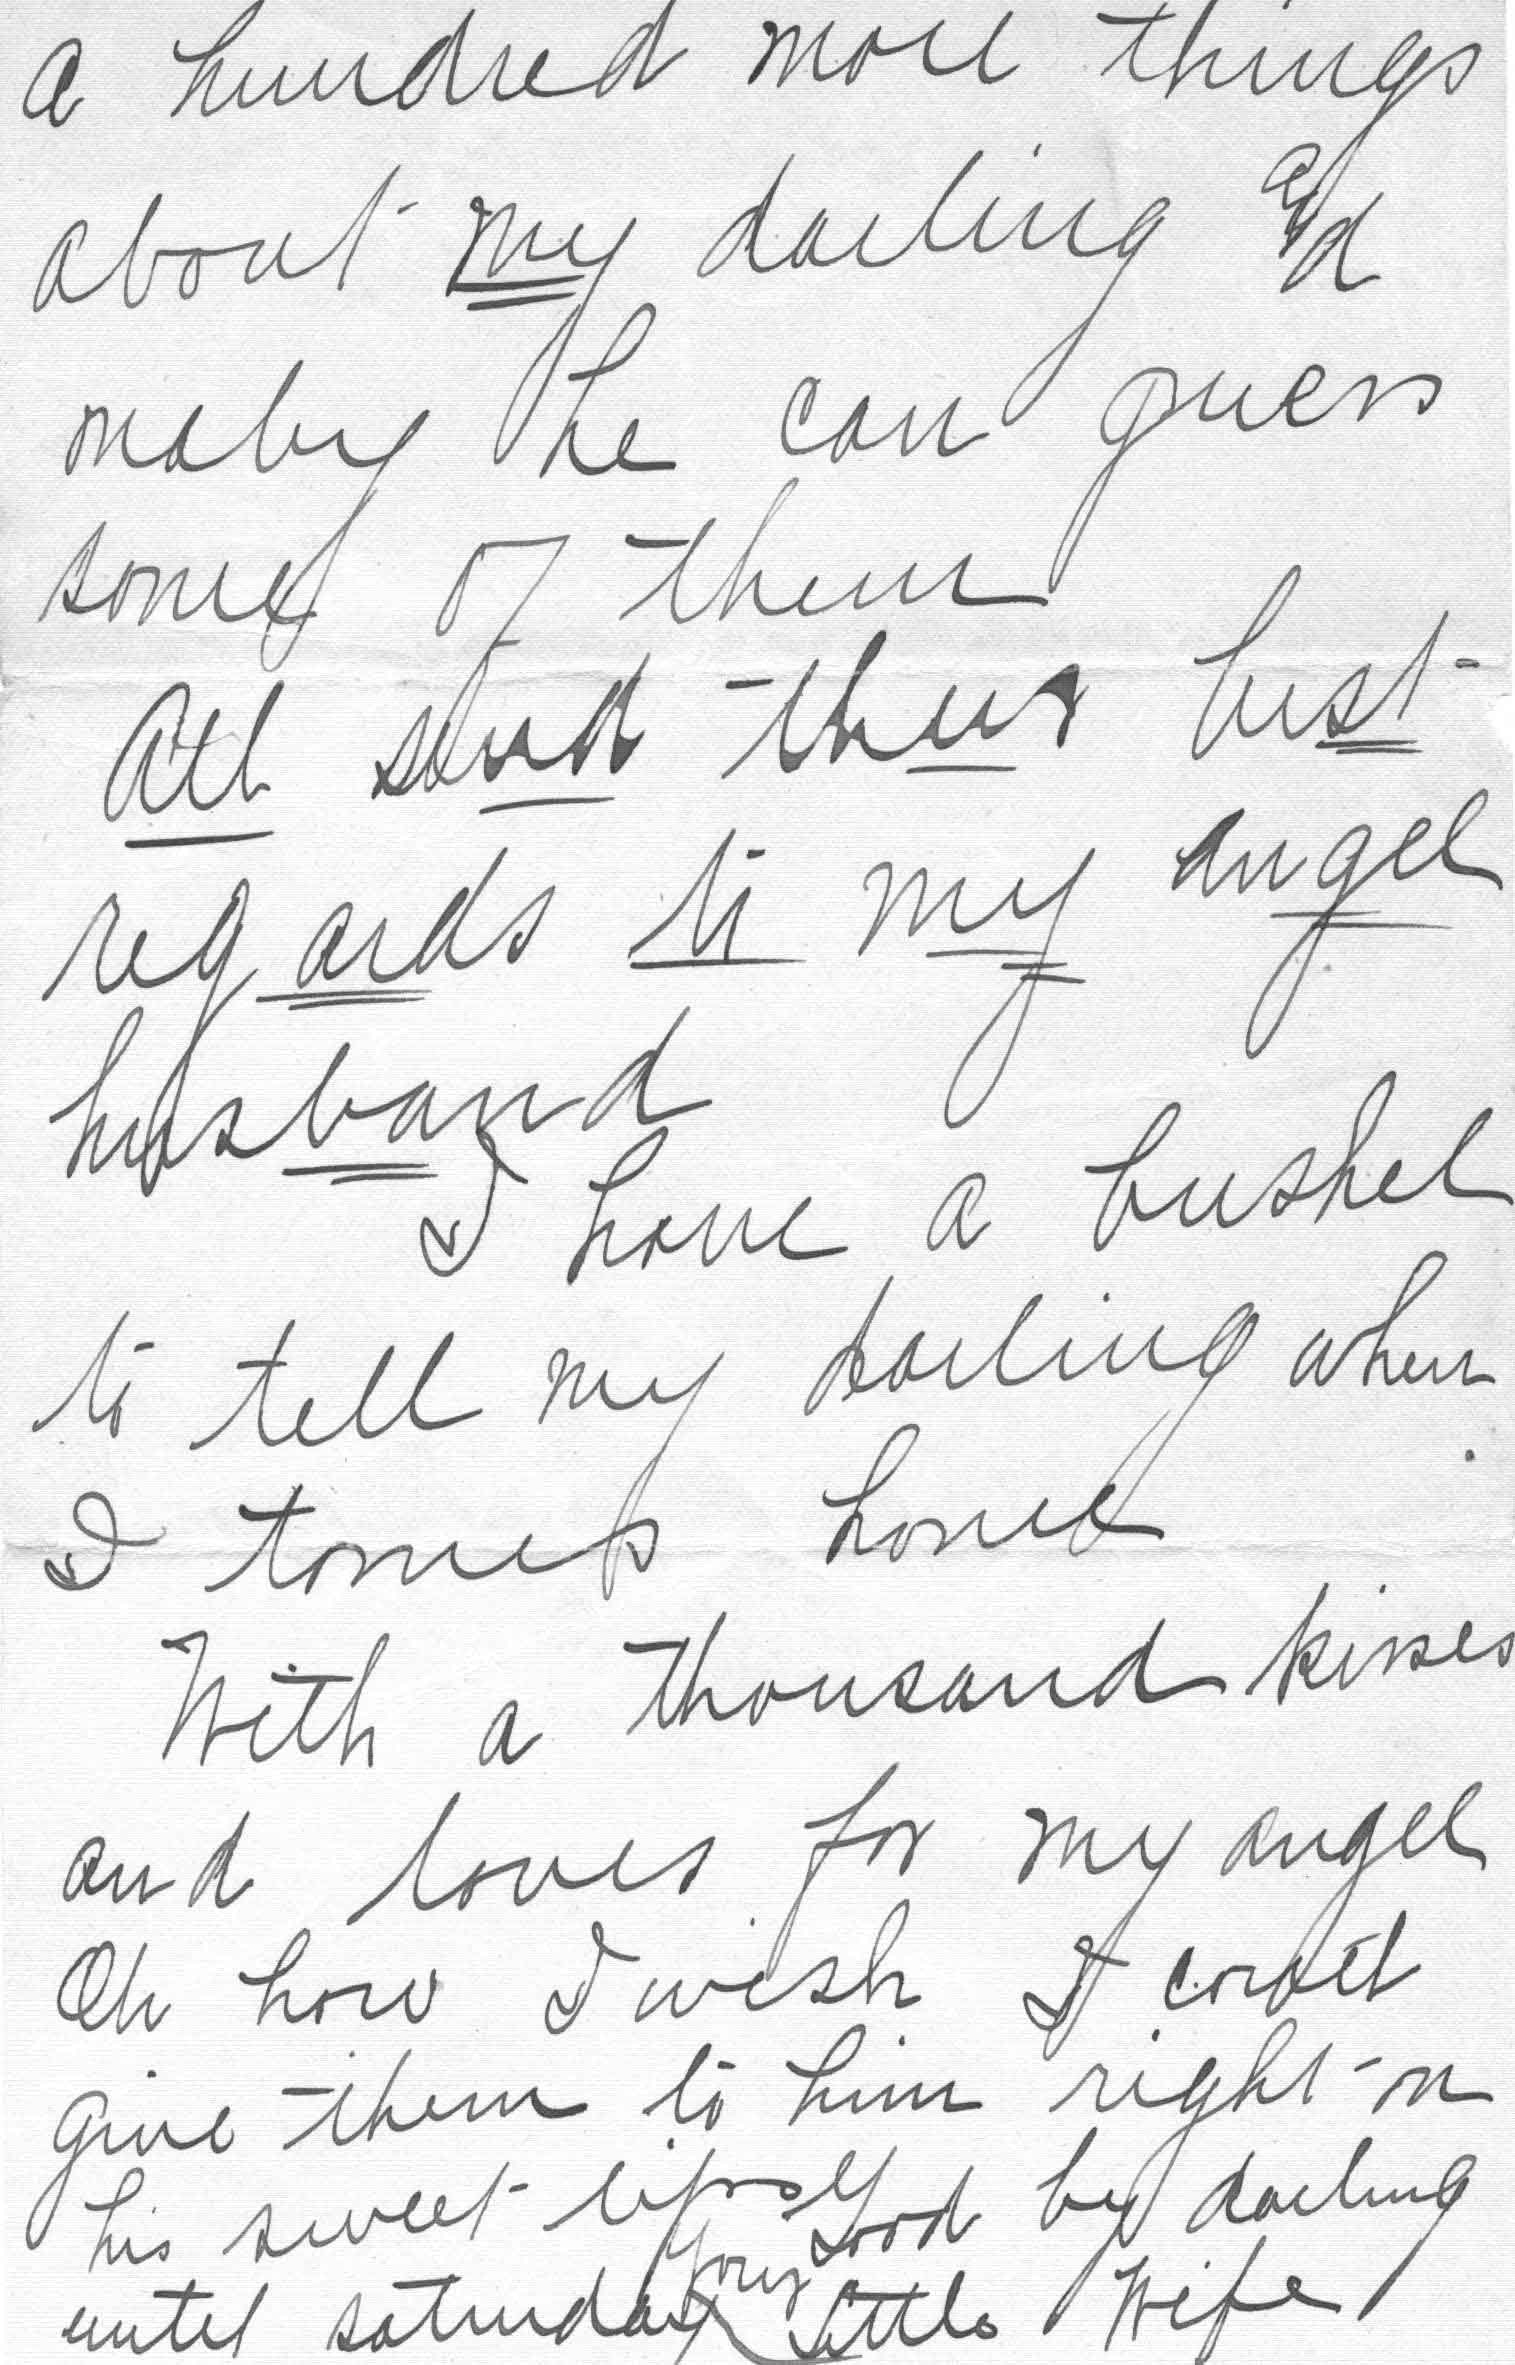 a hundred more things
about my darling and
maby he can guess
some of them
All send their best
regards to my angel
husband
I have a bushel
to tell my darling when
I tomes home
With a thousand kisses
and loves for my angel
Oh how I wish I could
give them to him right on
his sweet lips Good by darling
until saturday Your Little Wife